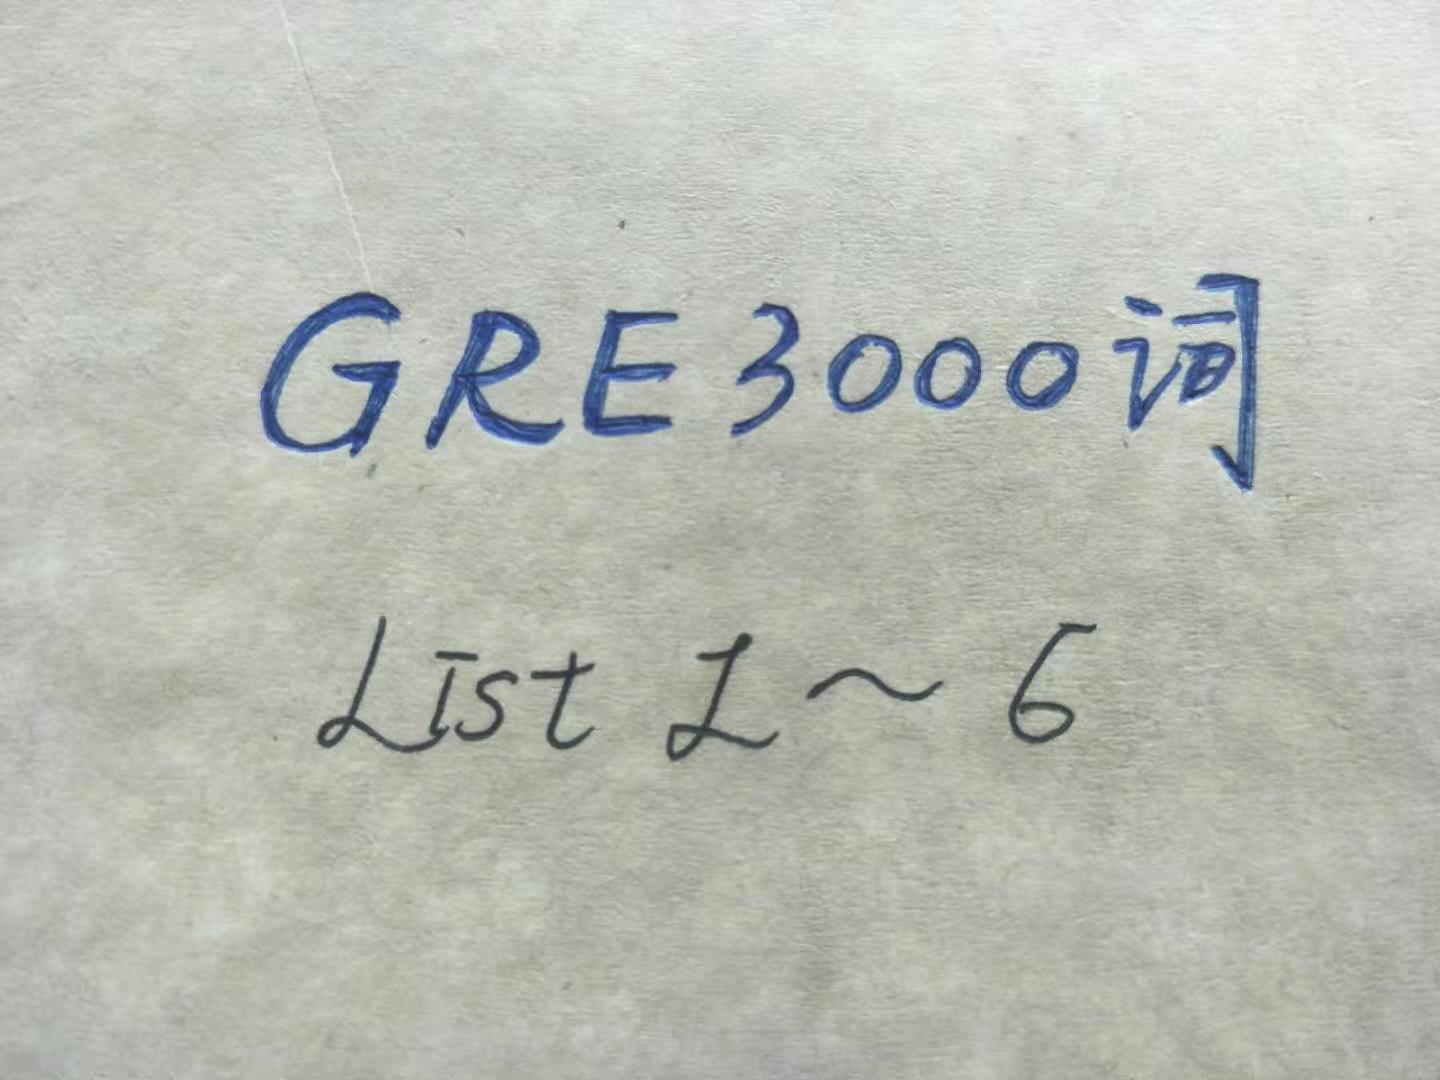 GRE3000词
List 1～6